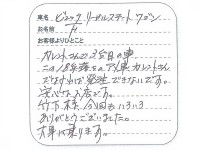 車名 ビュック リーガルステート ワゴン
お名前
お客様よりひとこと
カレントさんで2台目の車
この18年落ちのアメ車、カレントさん
でなければ発注できないです。
安心なお店です。
竹下様、今回もいろいろ
ありがとうございました。
大事に乗ります。